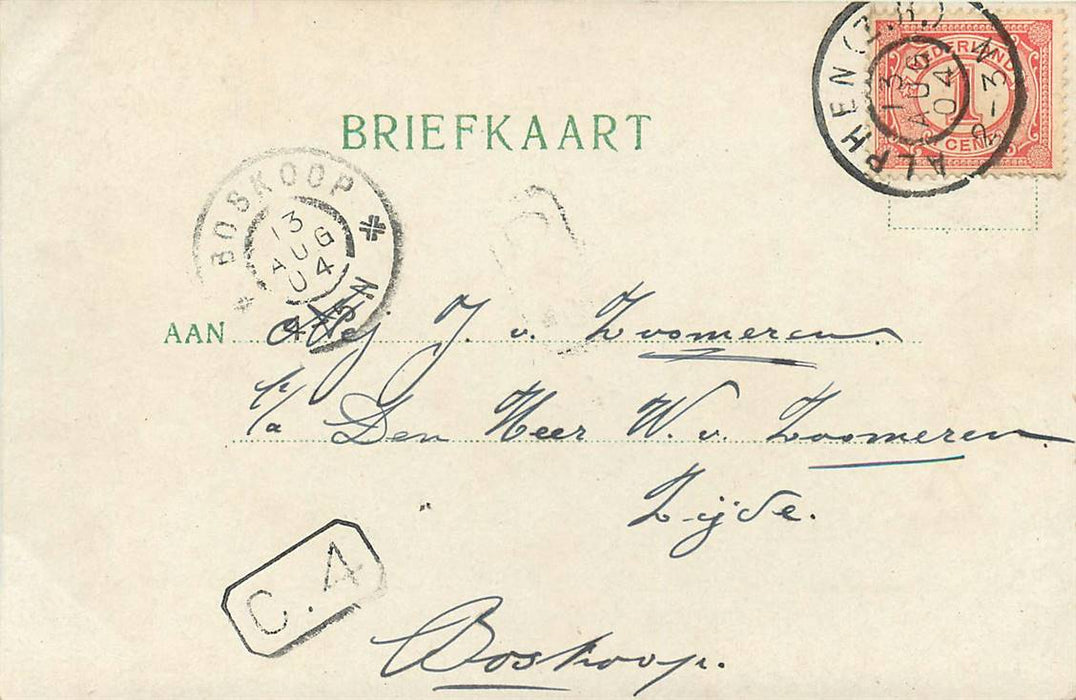 NEDERLAND
1
CENT
ALPHEN (Z.H.)
13
AUG
04
2-3 N
BRIEFKAART
BOSKOOP
13
AUG
04
N
AAN Mej J. v. Zoomeren.
p/a Den Heer W. v. Zoomeren
Zijde.
C.4
Boskoop.